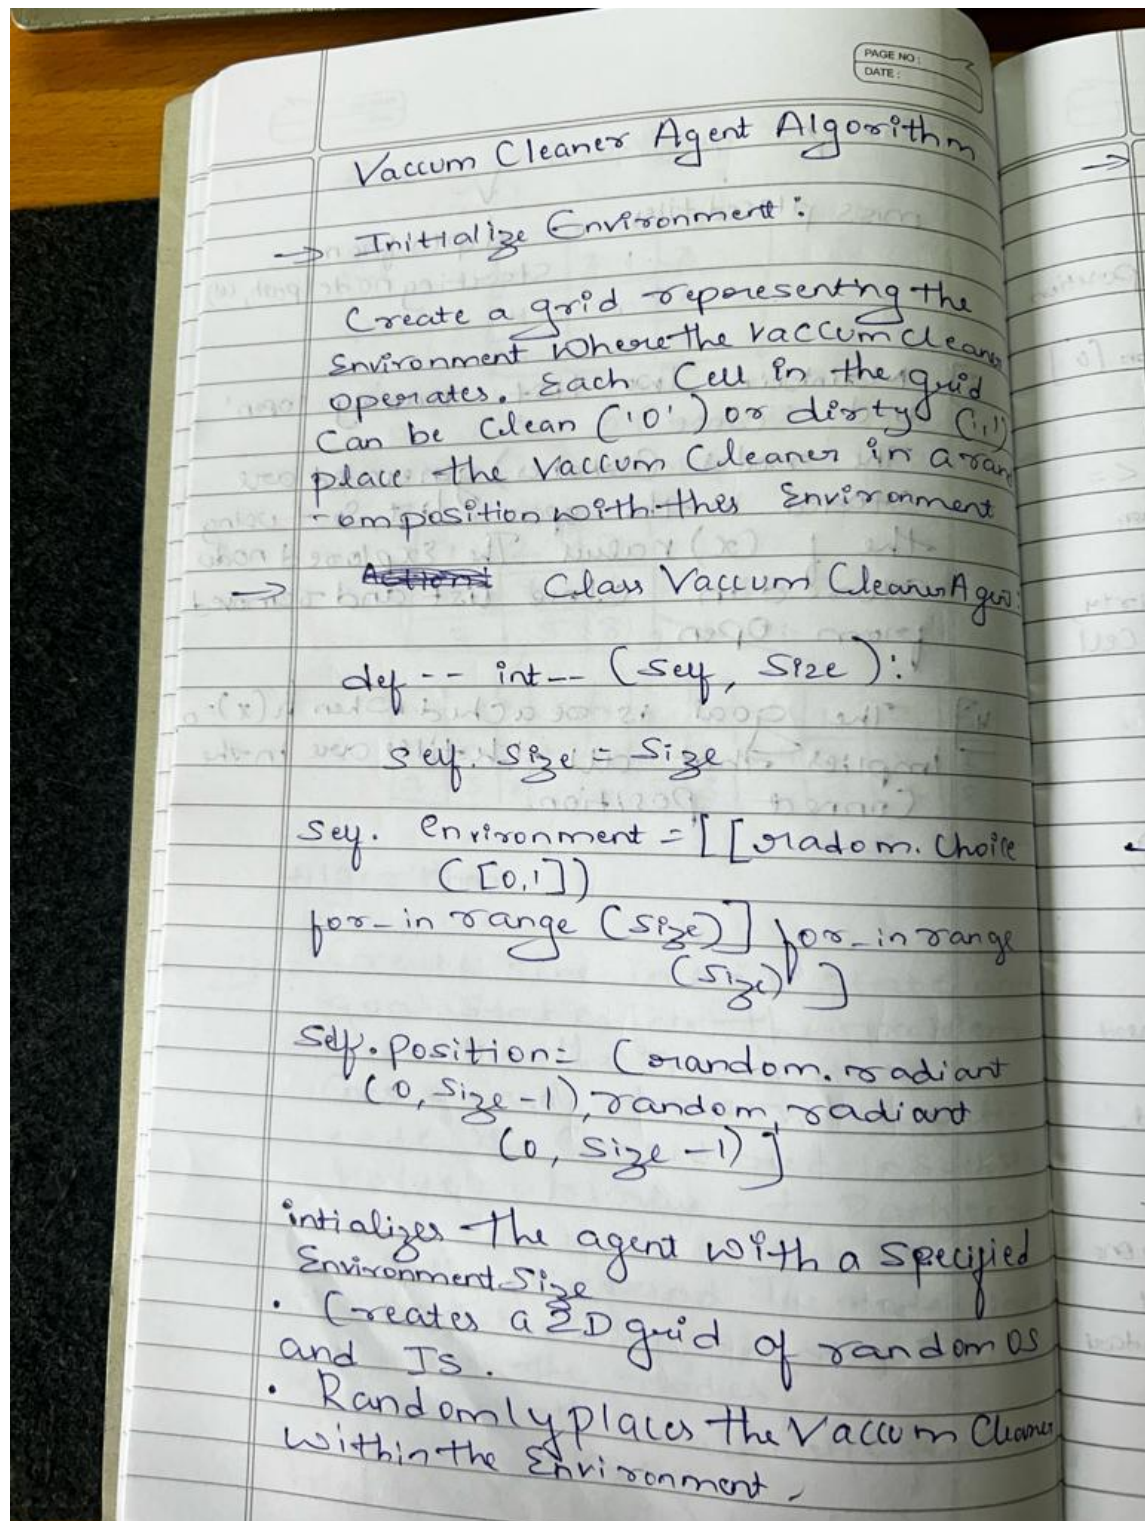 PAGE NO :
DATE :
Vaccum Cleaner Agent Algorithm
→ Initialize Environment :
Create a grid representing the
Environment where the vaccum cleaner
operates. Each Cell in the grid
Can be Clean ('0') or dirty ('1')
place the Vaccum Cleaner in a ran
-om position with this Environment
→ Class Vaccum Cleaner Agen:
def -- int -- (self, Size):
self. Size = Size
self. environment = [[radom. Choice
([0,1])
for _ in range (Size)] for _ in range
(Size) ]
Self. Position = (random. radiant
(0, Size -1), random, radiant
(0, Size -1)]
intializes the agent with a Specified
Environment Size
• Creates a 2D grid of random 0S
and IS.
• Randomly places the Vaccum Cleaner
within the Environment.